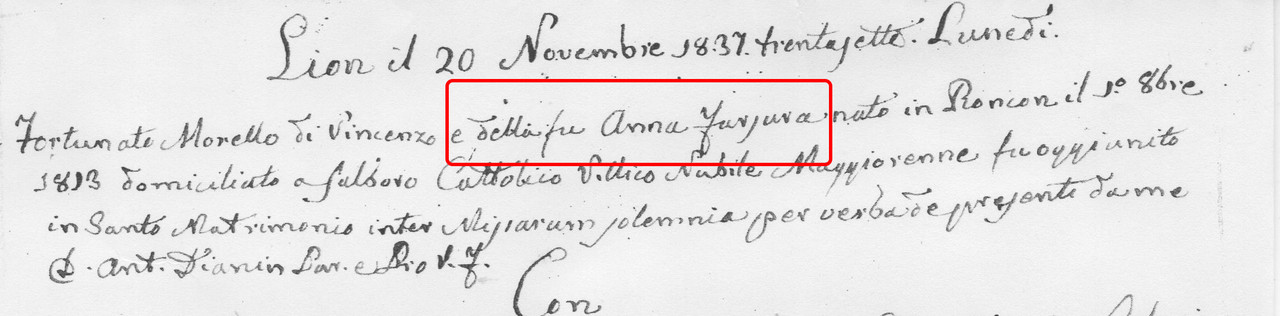 Lion il 20 Novembre 1837. trentasette. Lunedi.
Fortunato Morello di Vincenzo e della fu Anna Farsura nato in Roncon il 1º 8bre
1813 domiciliato a Salboro Cattolico Villico Nubile Maggiorenne fu oggi unito
in Santo Matrimonio inter Missarum solemnia per verba de presenti da me
D. Ant. Dianin Par. e Pio V. F.
Con